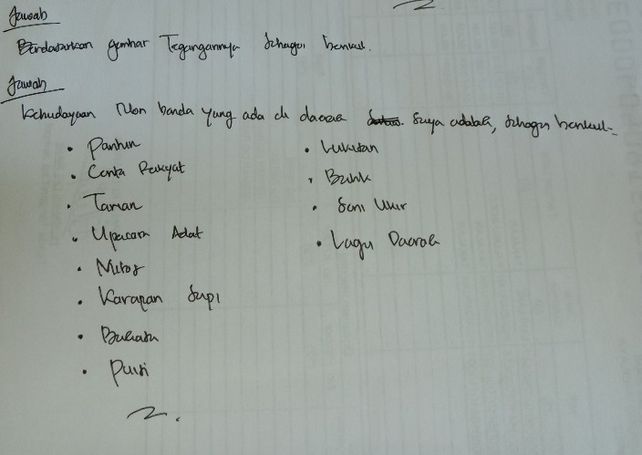 Jawab
Berdasarkan gambar Tegangannya sebagai berikut.
Jawab
Kebudayaan Non benda yang ada di daerah saya adalah, sebagai berikut:-
• Pantun
• Cerita Rakyat
• Tarian
• Upacara Adat
• Mitos
• Karapan Sapi
• Bahasa
• Puisi
• Lukisan
• Batik
• Seni Ukir
• Lagu Daerah